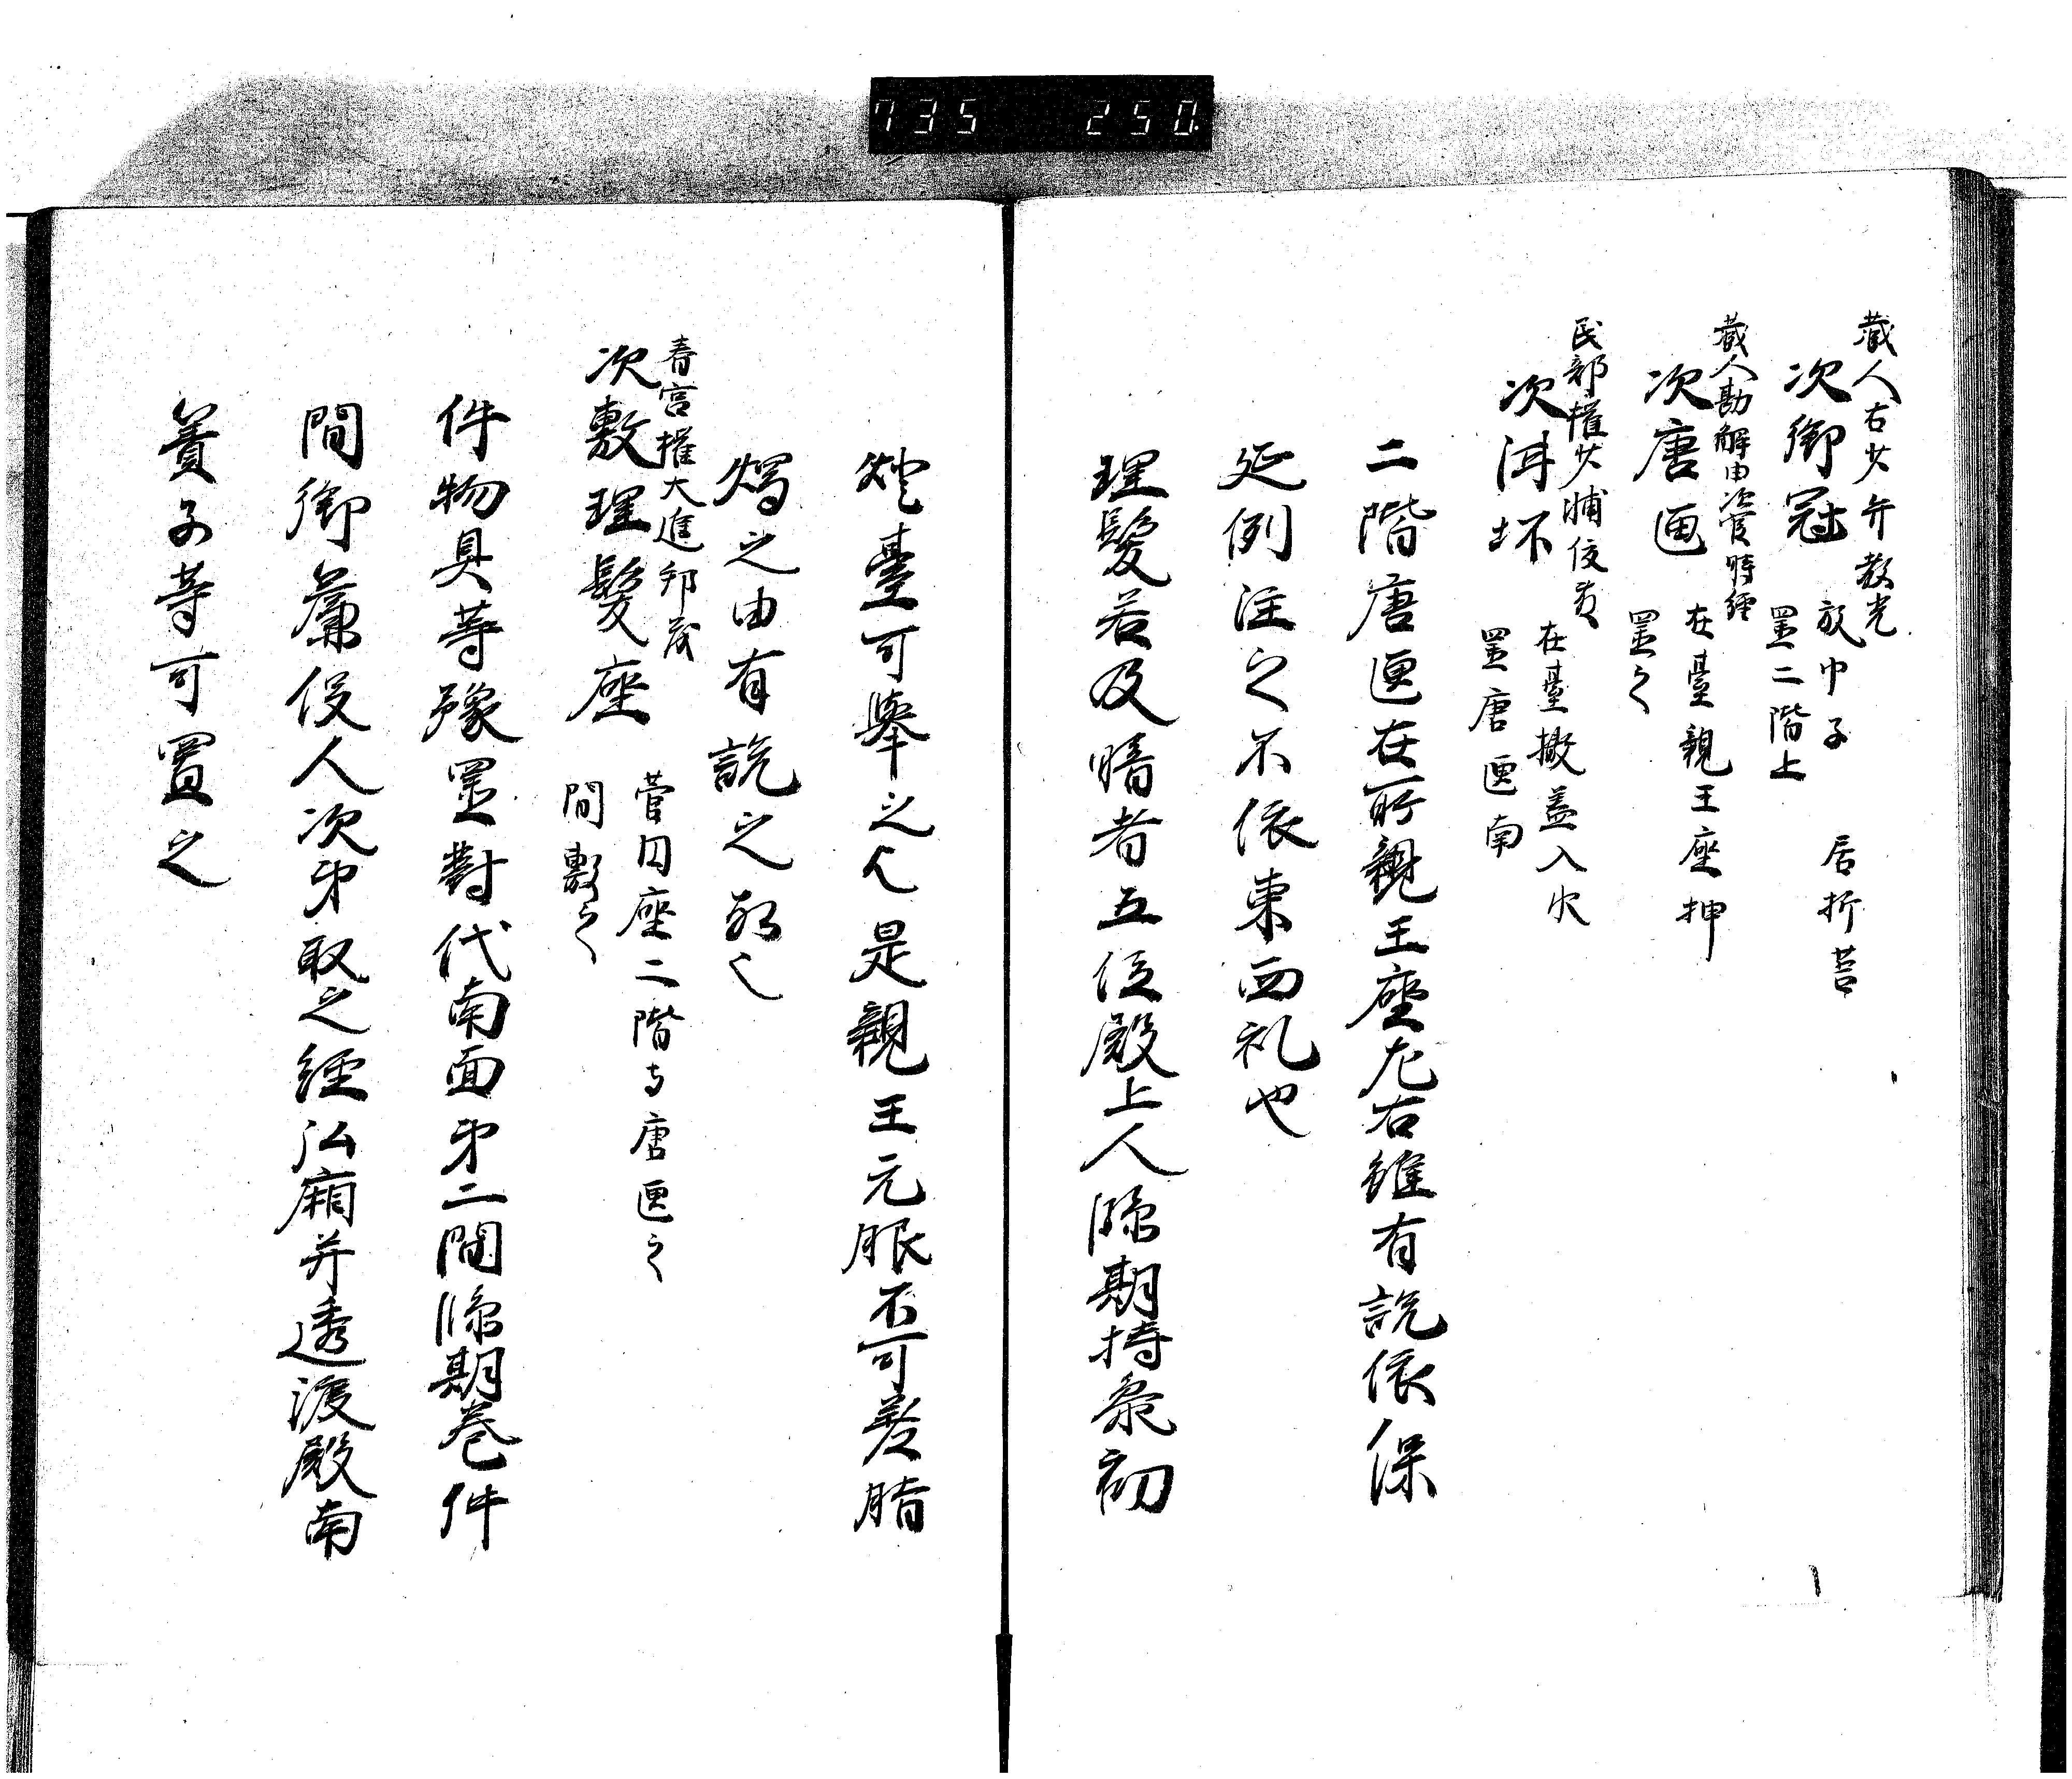 735 250
蔵人右少弁教光
次御冠 放巾子 居折莒
置二階上
蔵人勘解由次官時経
次唐匣 在臺親王座押
置之
民部權少輔
次泔坏 在臺撤盖入水
置唐匣南
二階唐匣在所親王座左右雖有説依保
延例注之不依東西礼也
理髪若及暗者五位殿上人臨期持参初
燈臺可擧之是親王元服不可差脂
燭之由有説之故也
春宮權大進邦茂
次敷理髪座 菅円座二階与唐匣之
間敷之
件物具等豫置對代南面第二間臨期巻件
間御簾役人次第取之經弘廂并透渡殿南
簀子等可置之